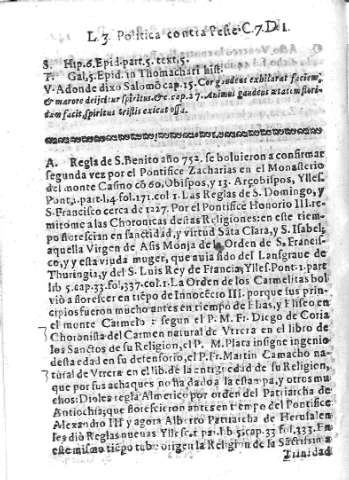 L. 3. Politica contra Peste. C. 7. D. 1.
S. Hip. 6. Epid. part. 5. text. 5.
T. Gal. 5. Epid. in Thomachari hist.
V. Adonde dixo Salomō cap. 15. Cor gaudens exhilarat faciem,
& mærore deijcitur spiritus, & c. cap. 17. Animus gaudens ætatem flori-
dam facit, spiritus tristis exicat ossa.
A. Regla de S. Benito año 752. se boluieron a confirmar
segunda vez por el Pontifice Zacharias en el Monasterio
del monte Casino cō 60. Obispos, y 13. Arçobispos, Yllesf.
Pont. 1. part. l. 4. fol. 171. col. 1. Las Reglas de S. Domingo, y
S. Francisco cerca de 1227. Por el Pontifice Honorio III. re-
mitome a las Choronicas destas Religiones: en este tiem-
po florescian en sanctidad, y virtud Sāta Clara, y S. Isabel,
aquella Virgen de Asis Monja de la Orden de S. Francis-
co, y esta viuda muger, que auia sido del Lansgraue de
Thuringia, y del S. Luis Rey de Francia, Yllesf. Pont. 1. part
lib 5. cap. 33. fol. 337. col. 1. La Orden de los Carmelitas bol-
viò a florescer en tiēpo de Innocēcio III. porque sus prin-
cipios fueron mucho antes en tiempo de Elias, y Eliseo en
el monte Carmelo: segun el P. M. Fr. Diego de Coria
Choronista del Carmen natural de Vtrera en el libro de
los Sanctos de su Religion, el P. M. Plata insigne ingenio
desta edad en su defensorio, el P. Fr. Martin Camacho na-
tural de Vtrera en el lib. de la antiguedad de su Religion,
que por sus achaques no ha dado a la estampa, y otros mu-
chos: Dioles regla Almerico por orden del Patriarcha de
Antiochia, que florescieron antes en tiempo del Pontifice
Alexandro III y agora Alberto Patriarcha de Hierusalen
les diò Reglas nueuas Yllesf. 1. part. lib. 5. cap. 33. fol. 333. En
este mismo tiēpo tubo origen la Religion de la Sāctissima
Trinidad